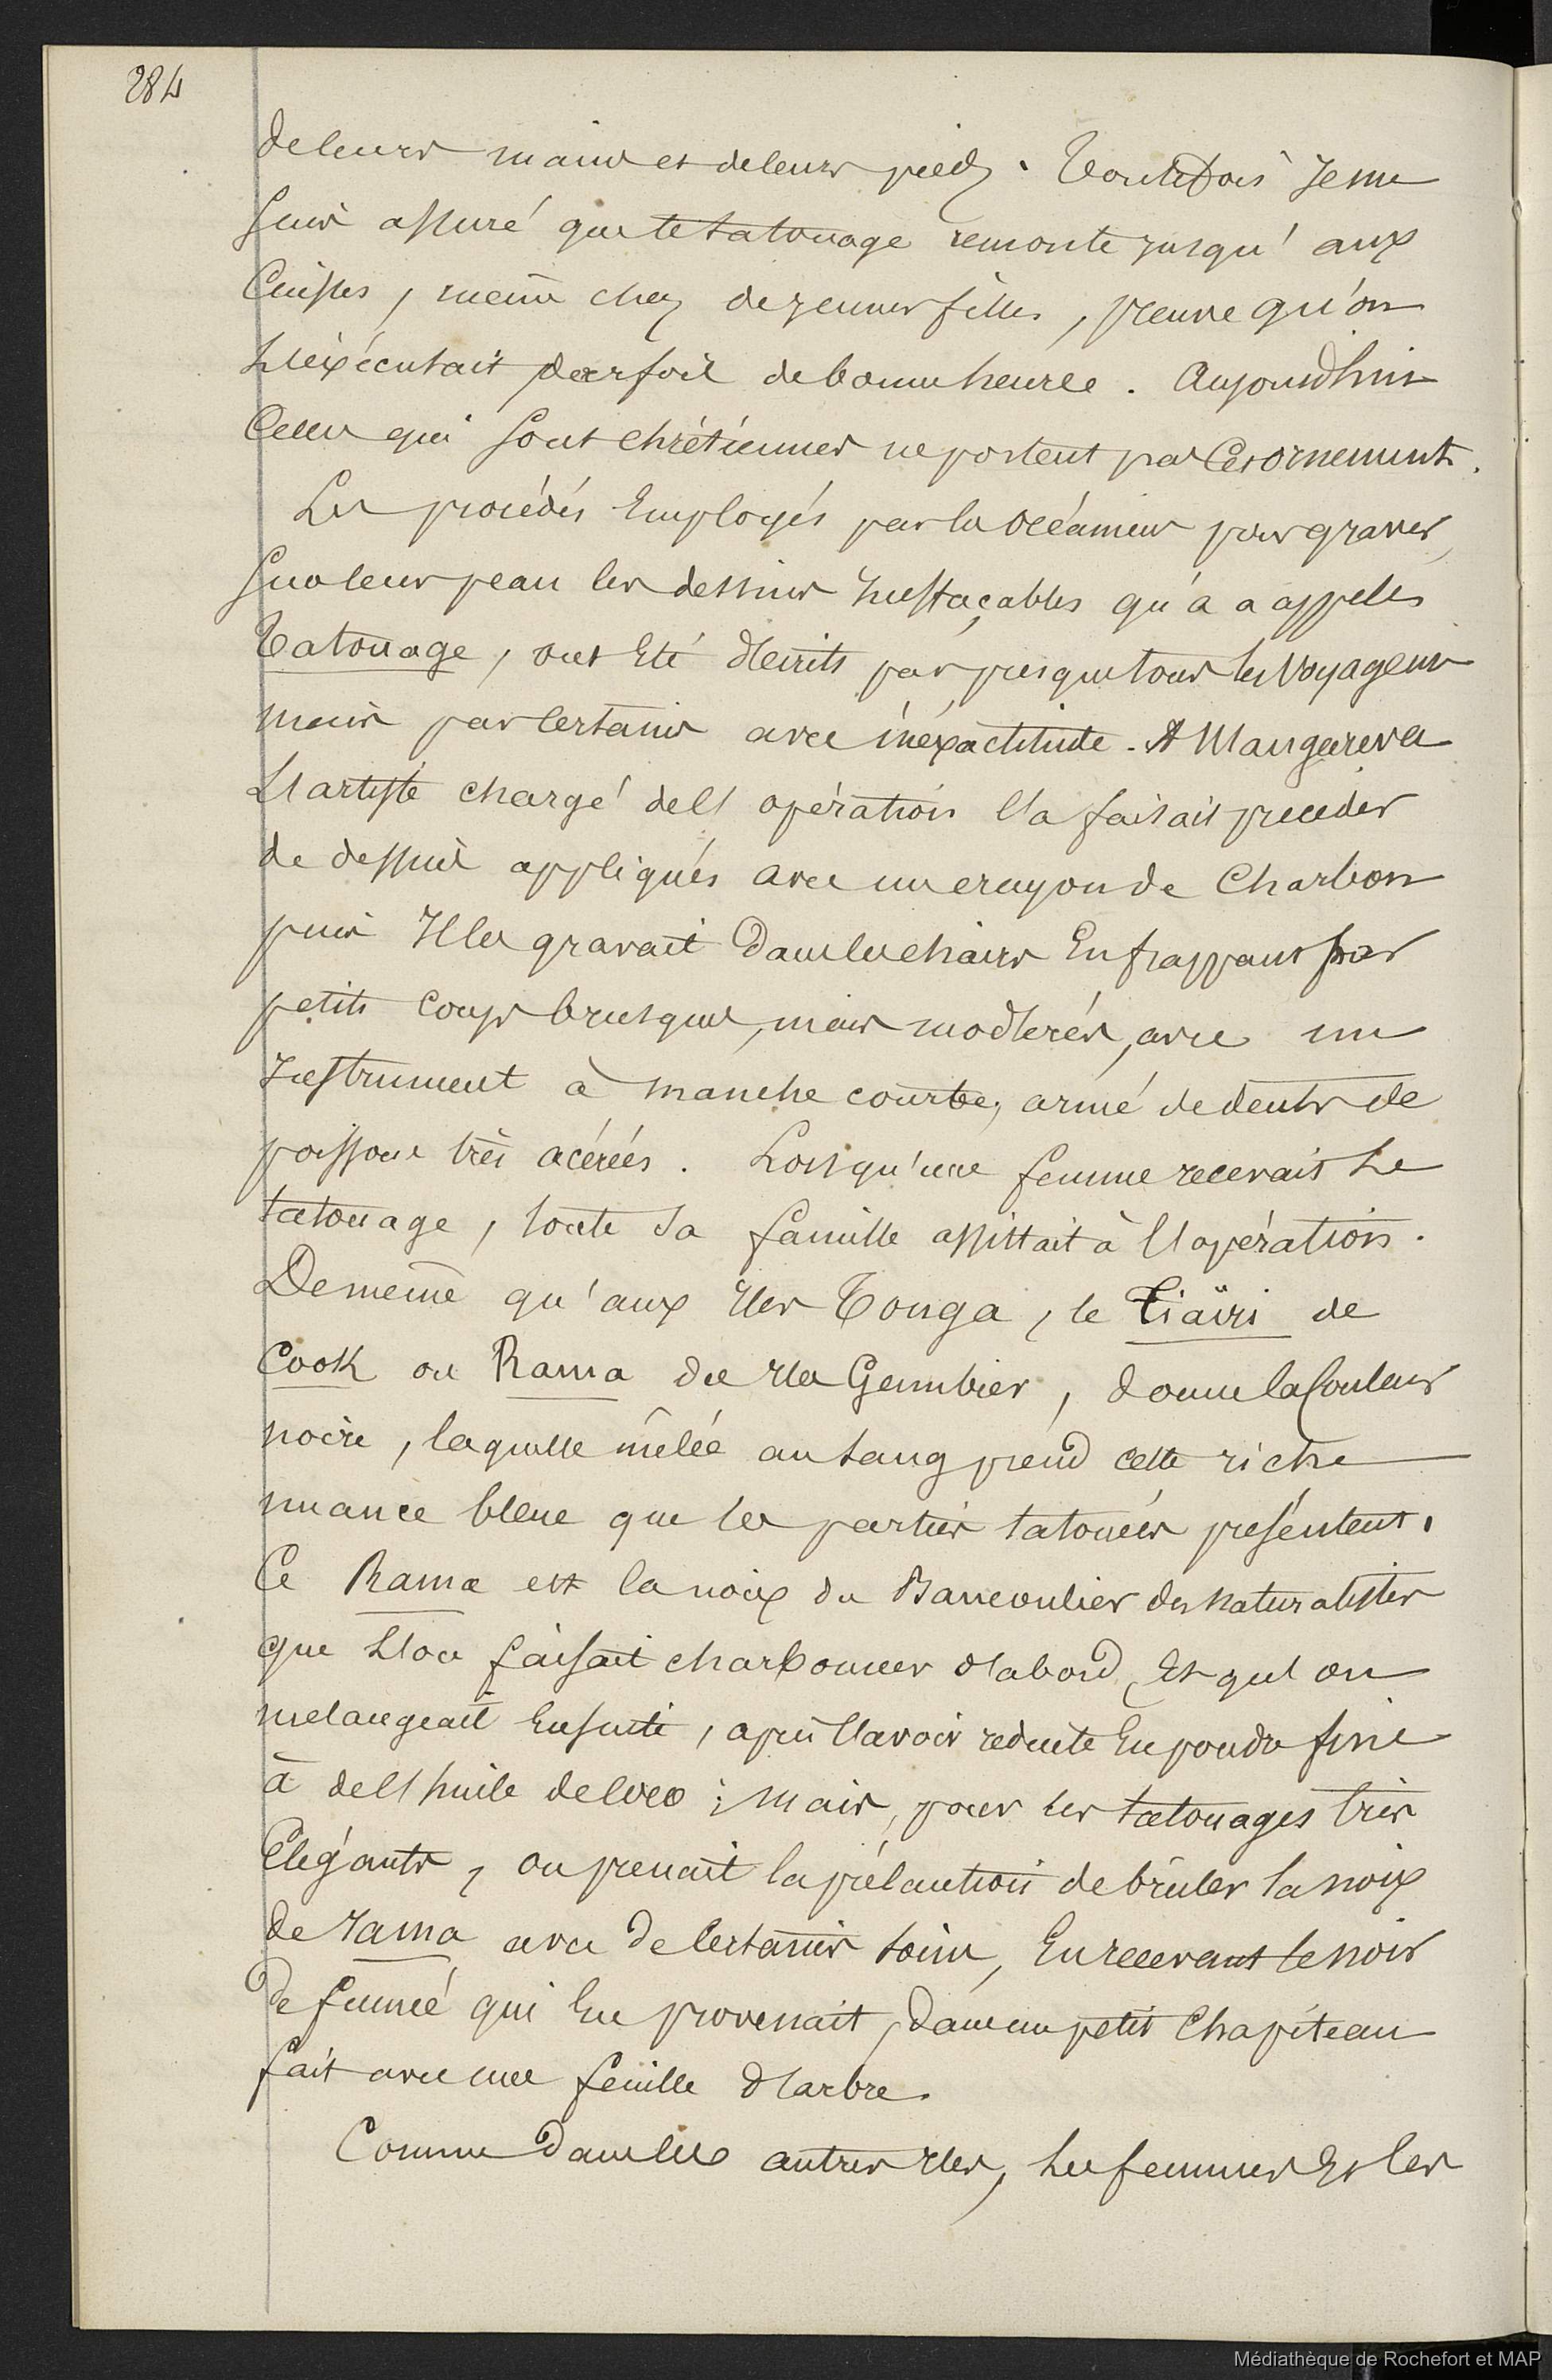 284
de leurs mains et de leurs pieds. Toutefois je me
suis assuré que le tatouage remonte jusqu'aux
Cuisses, même chez de jeunes filles, preuve qu'on
l'éxécutait parfois de bonne heure. Aujourdhui
Celles qui sont chrétiennes ne portent pas Ces ornements.
Les procédés Employés par les Océaniens pour graver,
sur leur peau les dessins Ineffaçables qu'on a appelés
Tatouage, ont Eté décrits par presque tous les Voyageurs
mais par Certains avec inéxactitude. A Mangareva
L'artiste chargé de l'opération la faisait preceder
de dessins appliqués avec un crayon de Charbon
puis Il les gravait Dans les chairs En frappant par
petits Coups brusques, mais modérés, avec un
Instrument à manche courbe, armé de dents de
poissons très acérées. Lorsqu'une femme recevait Le
tatouage, toute sa famille assistait à l'opération.
De même qu'aux Iles Tonga, le Tiäiri de
Cook ou Rama des Iles Gambier, donne la Couleur
noire, laquelle mêlée au sang prend cette riche
nuance bleue que les parties tatouées présentent.
Ce Rama est la noix du Bancoulier des Naturalistes
que L'on faisait charbonner d'abord, Et qu'on
melangeait Ensuite, après l'avoir reduite En poudre fine
à de l'huile de Coco; Mais, pour les tatouages très
Elégants, on prenait la précaution de brûler la noix
de rama avec de Certains soins, En recevant le noir
de fumée qui En provenait, dans un petit Chapiteau
fait avec une feuille d'arbre.
Comme Dans les autres Iles, Les femmes Et les
Médiathèque de Rochefort et MAP